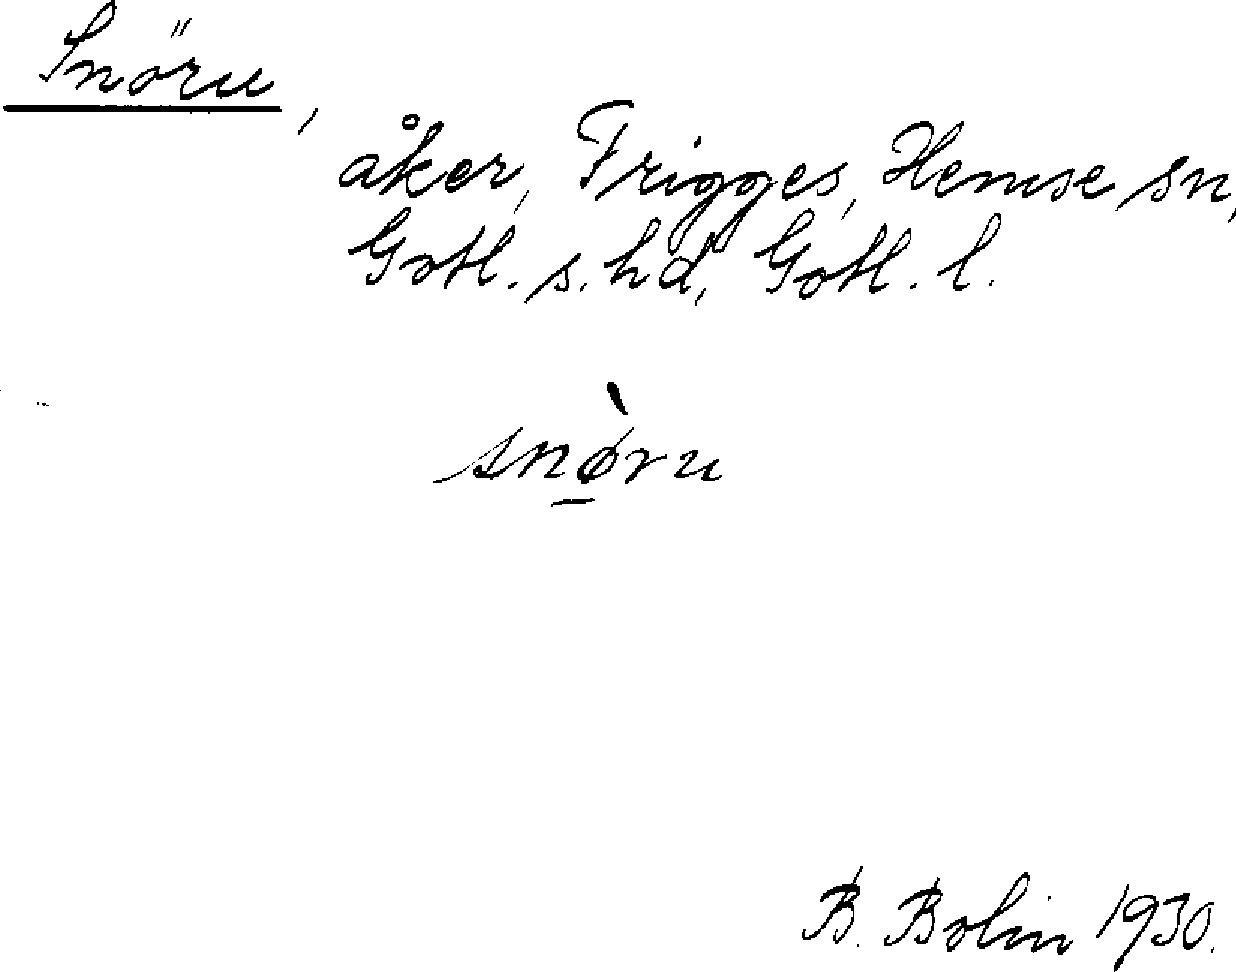 Snöru,
åker, Frigges, Hemse sn,
Gotl. s. hd, Gotl. l.
snø̀ru
B. Bolin 1930.